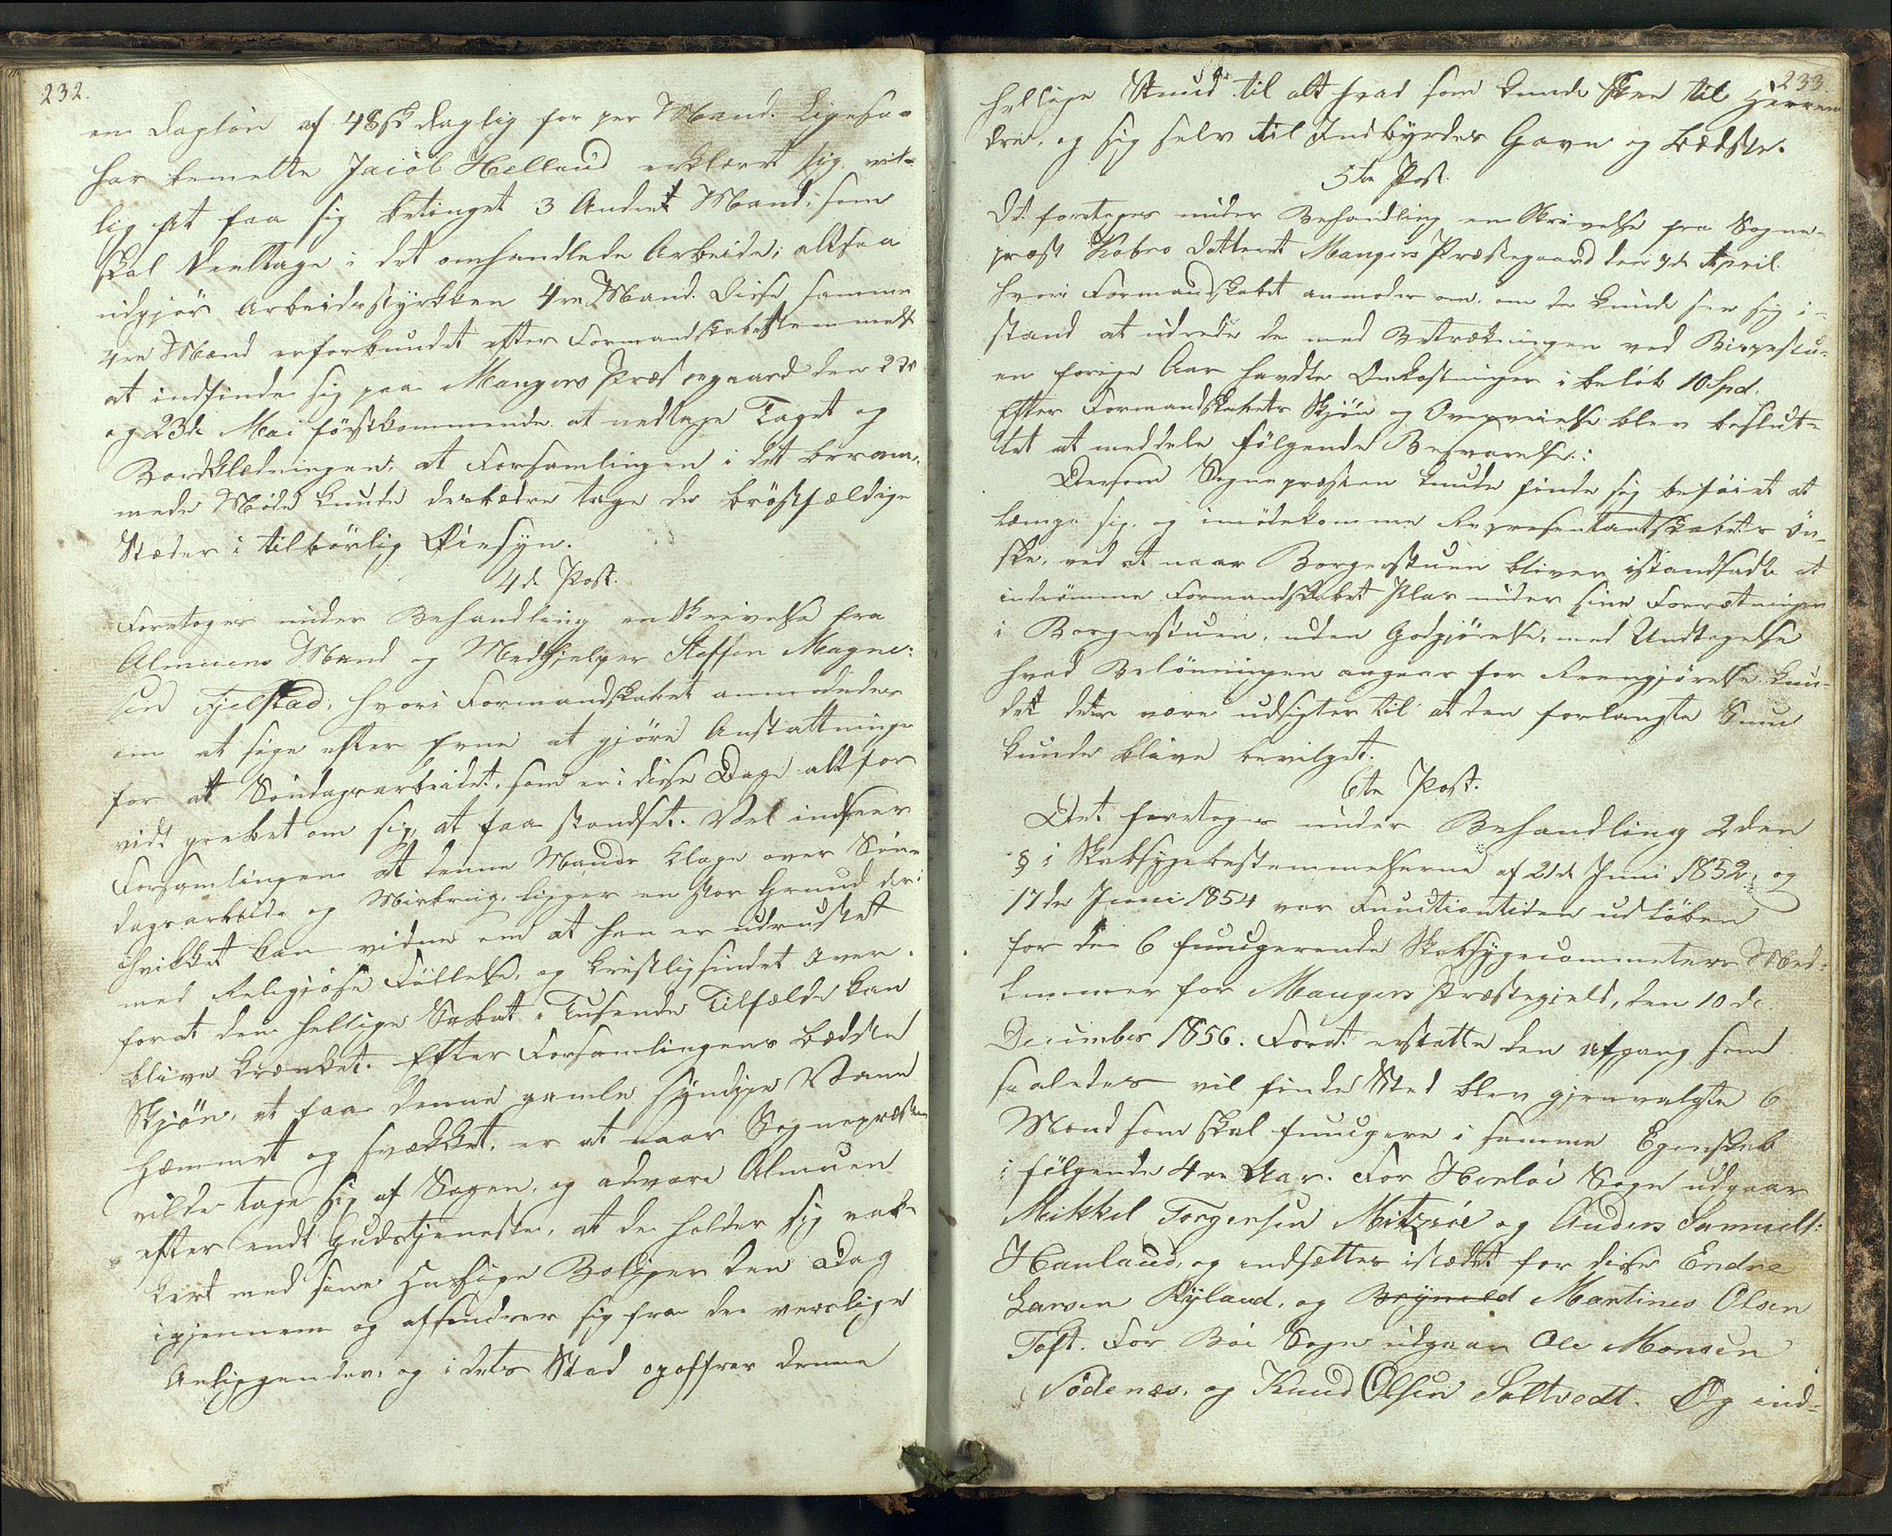 232.
en Dagløn af 48 sk daglig for per Mand. Ligesaa-
har bemelte Jacob Helland erklæret sig vil-
lig At faa sig betinget 3 Andre Mand, som
skal deeltage i det omhandlede Arbeide; altsaa
udgjør Arbeidsstyrkken 4re Mand. Disse samme
4re Mænd er forbundet efter Formandskabets
at indfinde sig paa Mangers Præstegaard den
og 23de Mai førstkommende at nedtage Taget og
Bordklædningen, at Forsamlingen i det beram-
mede Møde kunde desbedre tage de brøstfældige
Stæder i tilbørlig Øiesyn.
4de Post.
Foretoges under Behandling en Skrivelse fra
Almuens Mand og Medhjelper Steffen Magne-
sen Fjelstad, hvori Formandskabet anmodedes
om at sige efter Evne at gjøre Anstaltninger
for at Søndagsarbeidet, som er i disse Dage altfor
vidt grebet om sig, at faa standset. Vel indseer
Forsamlingen at denne Mands Klage over Søn-
dagsarbeide og Misbrug, ligger en stor Grund der i
hvilket kan vidne om at han er udrustet
med Religiøse Føllelse, og kristligsindet Iver
forat den hellige Sabat i Tusende Tilfælde kan
blive krænket. Efter Forsamlingens bedste
Skjøn, at faa denne gamle syndige Vane
hæmmet og svækket, er at naar Sognepræsten
vilde tage sig af Sagen, og advare Almuen
efter endt Gudstjeneste, at de holder sig vak-
kert med sine Huslige Boliger den Dag
igjennem og affondrer sig fra de verslige
Anliggender, og i dets Sted opoffrer denne
233.
hellige Stund til alt hvad som kunde skee til Herrens
Ære, og sig selv til Indbyrdes Gavn og bedste.
5te Post.
Det foretoges under Behandling en Skrivelse fra Sogne-
præst Kobro datteret Mangers Præstegaard den 9de April
hvori Formandskabet anmodes om, om de kunde see sig i-
stand at udrede de med Betrækningen ved Bispestu-
en forige Aar havdte Omkostninger i beløb 10 Spd.
Efter Formandskabets Skjøn og Overveielse blev beslut-
tet at meddele følgende Besvarelse:
Dersom Sognepræsten kunde finde sig beføiet at
læmpe sig, og imødekomme Repræsentantskabets Øn-
ske, ved at naar Borgerstuen bliver istandsadt at
indrømme Formandskabet Plas under sine Forretninger
i Borgerstuen, uden Godgjørelse, med Undtagelse
hvad Belønningen angaar for Reengjørelse kun-
det dets være udsigter til at den forlangte Sum
kunde blive bevilget.
6te Post.
Det foretoges under Behandling 2den
§ i Skabsygebestemmelserne af 21de Juni 1852, og
17de Juni 1854 var Functiontiden udløben
for de 6 fungerende Skabsygecommeters Med-
lemmer for Mangers Præstegield, den 10de
December 1856. Forat erstatte den Afgang som
saaledes vil finde Sted blev gjenvalgte 6
Mand som skal fungere i samme Egenskab
i følgende 4re Aar. For Herlø Sogn udgaar
Mikkel Torgersen Mitzøe og Anders Samuels:
Hauland, og indsættes istædet for disse Endre
Larsen Ryland, og Brynild Martines Olsen
Toft. For Bøe Sogn udgaar Ole Monsen
Sødenæs, og Knud Olsen Soltvedt. Og ind-